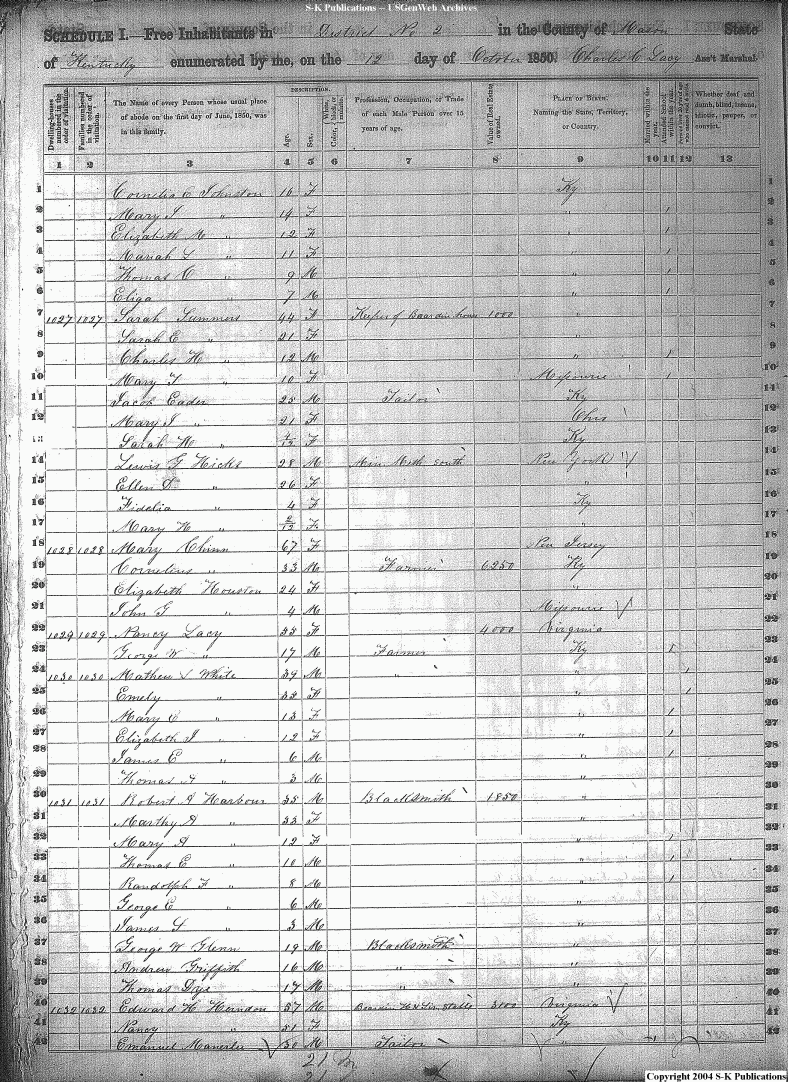 S-K Publications -- USGenWeb Archives
SCHEDULE I.—Free Inhabitants in District No 2 in the County of Mason State
of Kentucky enumerated by me, on the 12 day of October 1850. Charles C Lacy Ass't Marshal.
Dwelling-houses numbered in the order of visitation.
Families numbered in the order of visitation.
The Name of every Person whose usual place of abode on the first day of June, 1850, was in this family.
DESCRIPTION.
Age.
Sex.
Color, White, black, or mulatto.
Profession, Occupation, or Trade of each Male Person over 15 years of age.
Value of Real Estate owned.
PLACE OF BIRTH. Naming the State, Territory, or Country.
Married within the year.
Attended School within the year.
Whether deaf and dumb, blind, insane, idiotic, pauper, or convict.
1 2 3 4 5 6 7 8 9 10 11 12 13
1 Cornelia C Johnston 16 F Ky 1
2 Mary J " 14 F " 1 2
3 Elizabeth M " 12 F 1 3
4 Mariah L " 11 F 1 4
5 Thomas C " 9 M 1 5
6 Eliga " 7 M " 1 6
7 1027 1027 Sarah Summers 44 F Keeper of Boardin house 1000 7
8 Sarah E " 21 F " 8
9 Charles H " 12 M " 1 9
10 Mary F " 10 F Missourie 1 10
11 Jacob Eader 25 M Tailor Ky 11
12 Mary J " 21 F Ohio 12
13 Sarah H " F Ky 13
14 Lewis G Hicks 28 M Min Meth South New York 14
15 Ellen " 26 F " 15
16 Fidelia " 4 F Ky 16
17 Mary H " 2/12 F " 17
18 1028 1028 Mary Chinn 67 F New Jersey 18
19 Cornelius " 33 M Farmer 6250 Ky 19
20 Elizabeth Houston 24 F " 20
21 John G " 4 M Missourie 21
22 1029 1029 Nancy Lacy F 4000 Virginia 22
23 George W " 17 M Farmer Ky 1 23
24 1030 1030 Mathew White 39 M " " 1 24
25 Emely " F " 1 25
26 Mary C " 13 F " 1 26
27 Elizabeth J " 12 F " 1 27
28 James E " 6 M " 1 28
29 Thomas A " 3 M " 29
30 1031 1031 Robert A Harbour 35 M Blacksmith 1850 " 30
31 Marthy A " 33 F " 31
32 Mary A " 12 F " 1 32
33 Thomas E " 10 M " 1 33
34 Randolph F " 8 M " 1 34
35 George E " 6 M " 35
36 James L " 3 M " 36
37 George W Glenn 19 M Blacksmith " 37
38 Andrew Griffith 16 M " " 38
39 Thomas Dye 17 M " " 39
40 1032 1032 Edward H Herndon 57 M 3000 Virginia 40
41 Nancy " 51 F Ky 41
42 Emanuel 30 M Tailor " 42
21 m
21
Copyright 2004 S-K Publications